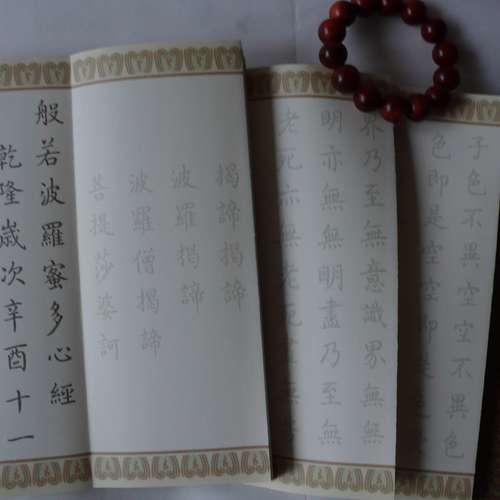 子色不異空空不異色
色即是空空即是色
界乃至無意識界無無
明亦無無明盡乃至無
老死亦無老死
揭諦揭諦
波羅揭諦
波羅僧揭諦
菩提莎婆訶
般若波羅蜜多心經
乾隆歲次辛酉十一